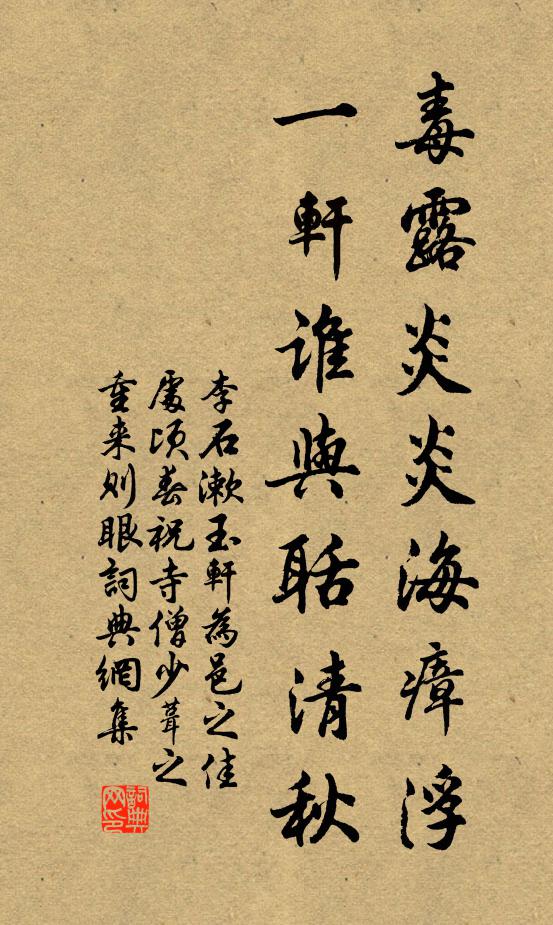 毒露炎炎海瘴浮
一軒誰與聒清秋
李石漱玉軒為邑之佳
處頃春祝寺僧少葺之
重来則眼詞典網集
詞典网印